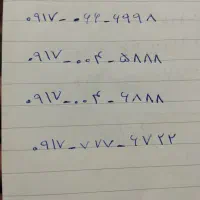 ۰۹۱۷_۰۶۶_۶۹۹۸
۰۹۱۷_۰۰۴_۵۸۸۸
۰۹۱۷_۰۰۴_۶۸۸۸
۰۹۱۷_۷۷۷_۶۷۲۲